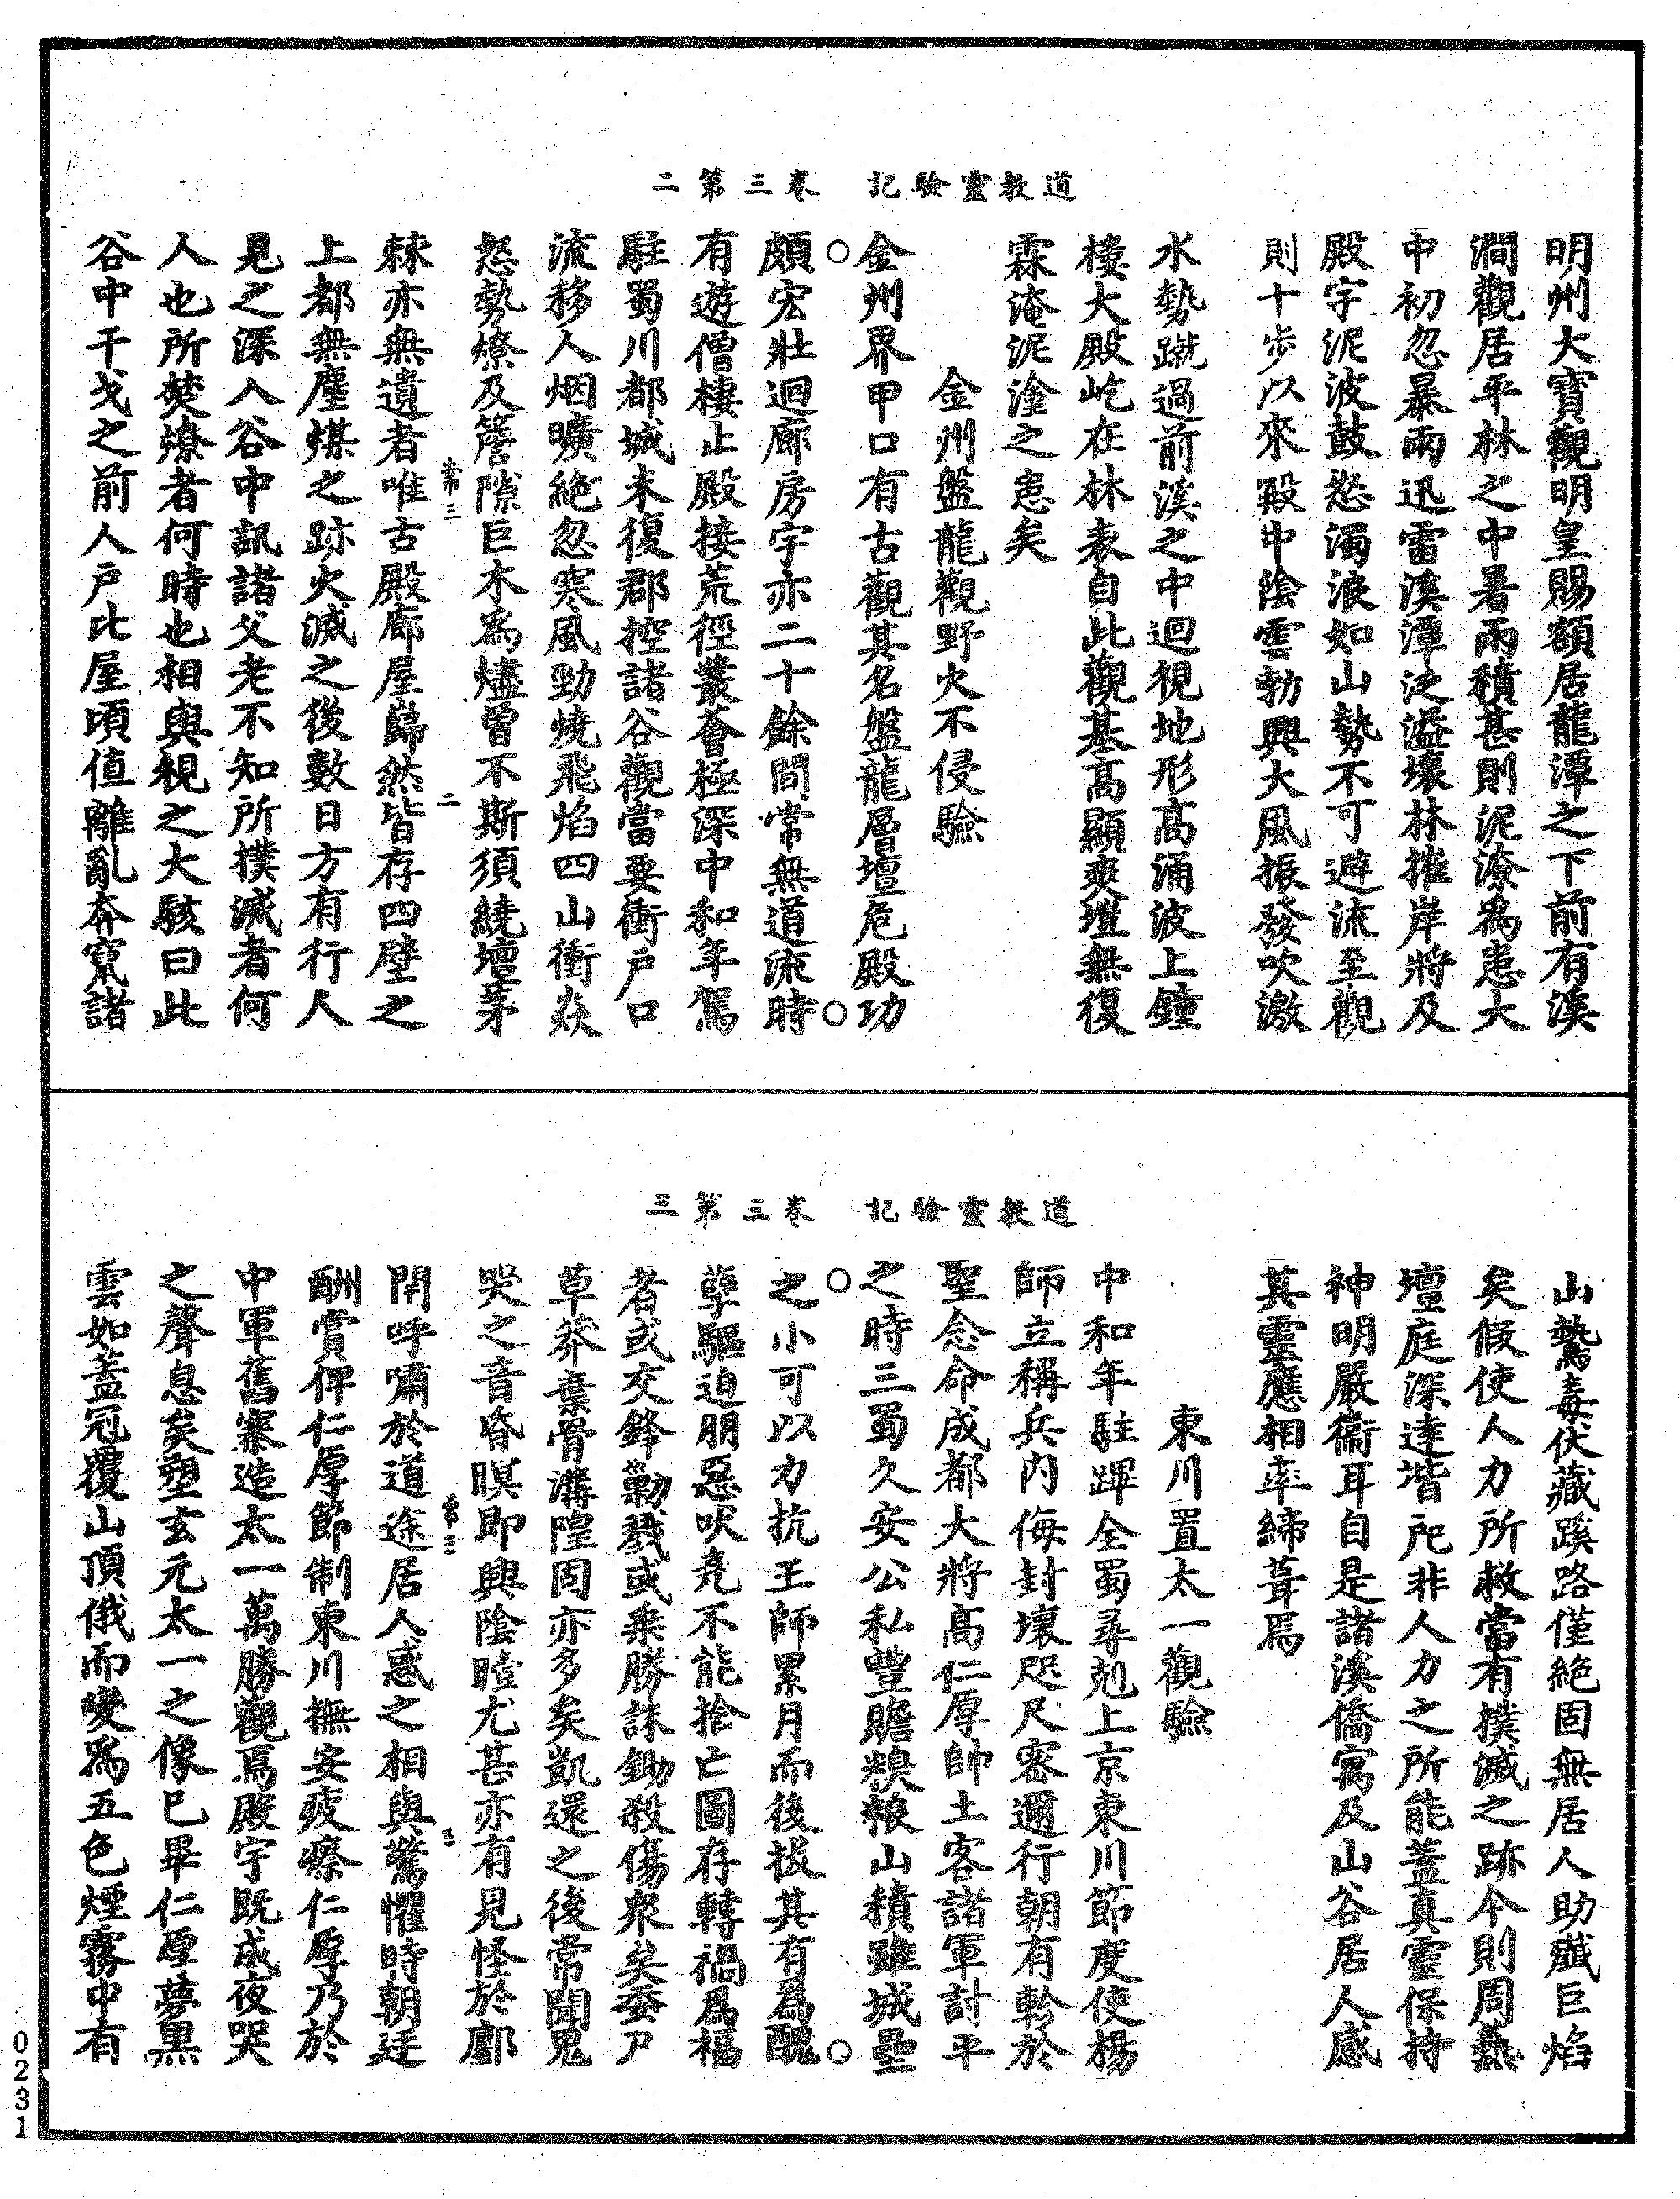 道教靈驗記　卷三第二
明州大寶觀明皇賜額居龍潭之下前有溪
澗觀居平林之中暑雨積甚則泥潦爲患大
中初忽暴雨迅雷溪潭泛溢壞林摧岸將及
殿宇泥波鼓怒濁浪如山勢不可避流至觀
則十步以來殿中陰雲勃興大風振發吹激
水勢蹴過前溪之中迴視地形髙涌波上鐘
樓大殿屹在林表自此觀基髙顯爽塏無復
霖淹泥塗之患矣
金州盤龍觀野火不侵驗
金州界甲口有古觀其名盤龍層壇危殿功
頗宏壯迴廊房宇亦二十餘間常無道流時
有遊僧棲止殿接荒徑叢薈極深中和年駕
駐蜀川都城未復郡控諸谷觀當要衝户口
流移人烟曠絶忽寒風勁燒飛焰四山衝焱
怒勢燎及簷隙巨木爲燼曾不斯須繞壇茅
常三　二
棘亦無遺者唯古殿廊屋巋然皆存四壁之
上都無塵煤之跡火滅之後數日方有行人
見之深入谷中訊諸父老不知所撲滅者何
人也所焚燎者何時也相與視之大駭曰此
谷中干戈之前人户比屋頃值離亂奔竄諸
道教靈驗記　卷三第三
山鷙毒伏藏蹊路僅絶固無居人助殲巨焰
矣假使人力所救當有撲滅之跡今則周爇
壇庭深達堦戺非人力之所能蓋真靈保持
神明嚴衞耳自是諸溪僑寓及山谷居人感
其靈應相率締葺焉
東川置太一觀驗
中和年駐蹕全蜀尋剋上京東川節度使楊
師立稱兵内侮封壤咫尺密邇行朝有軫於
聖念命成都大將髙仁厚帥土客諸軍討平
之時三蜀久安公私豐贍糗粮山積雖城壘
之小可以力抗王師累月而後拔其有爲醜
孽驅迫朋惡吠堯不能捨亡圖存轉禍爲福
者或交鋒勦戮或乘勝誅鋤殺傷衆矣委尸
草莽棄骨溝隍固亦多矣凱還之後常聞鬼
哭之音昏暝即興陰曀尤甚亦有見怪於鄽
常三　三
閈呼嘯於道途居人惑之相與驚懼時朝廷
酬賞俾仁厚節制東川撫安疲瘵仁厚乃於
中軍舊寨造太一萬勝觀焉殿宇既成夜哭
之聲息矣塑玄元太一之像已畢仁厚夢黑
雲如蓋冠覆山頂俄而變爲五色煙霧中有
0231